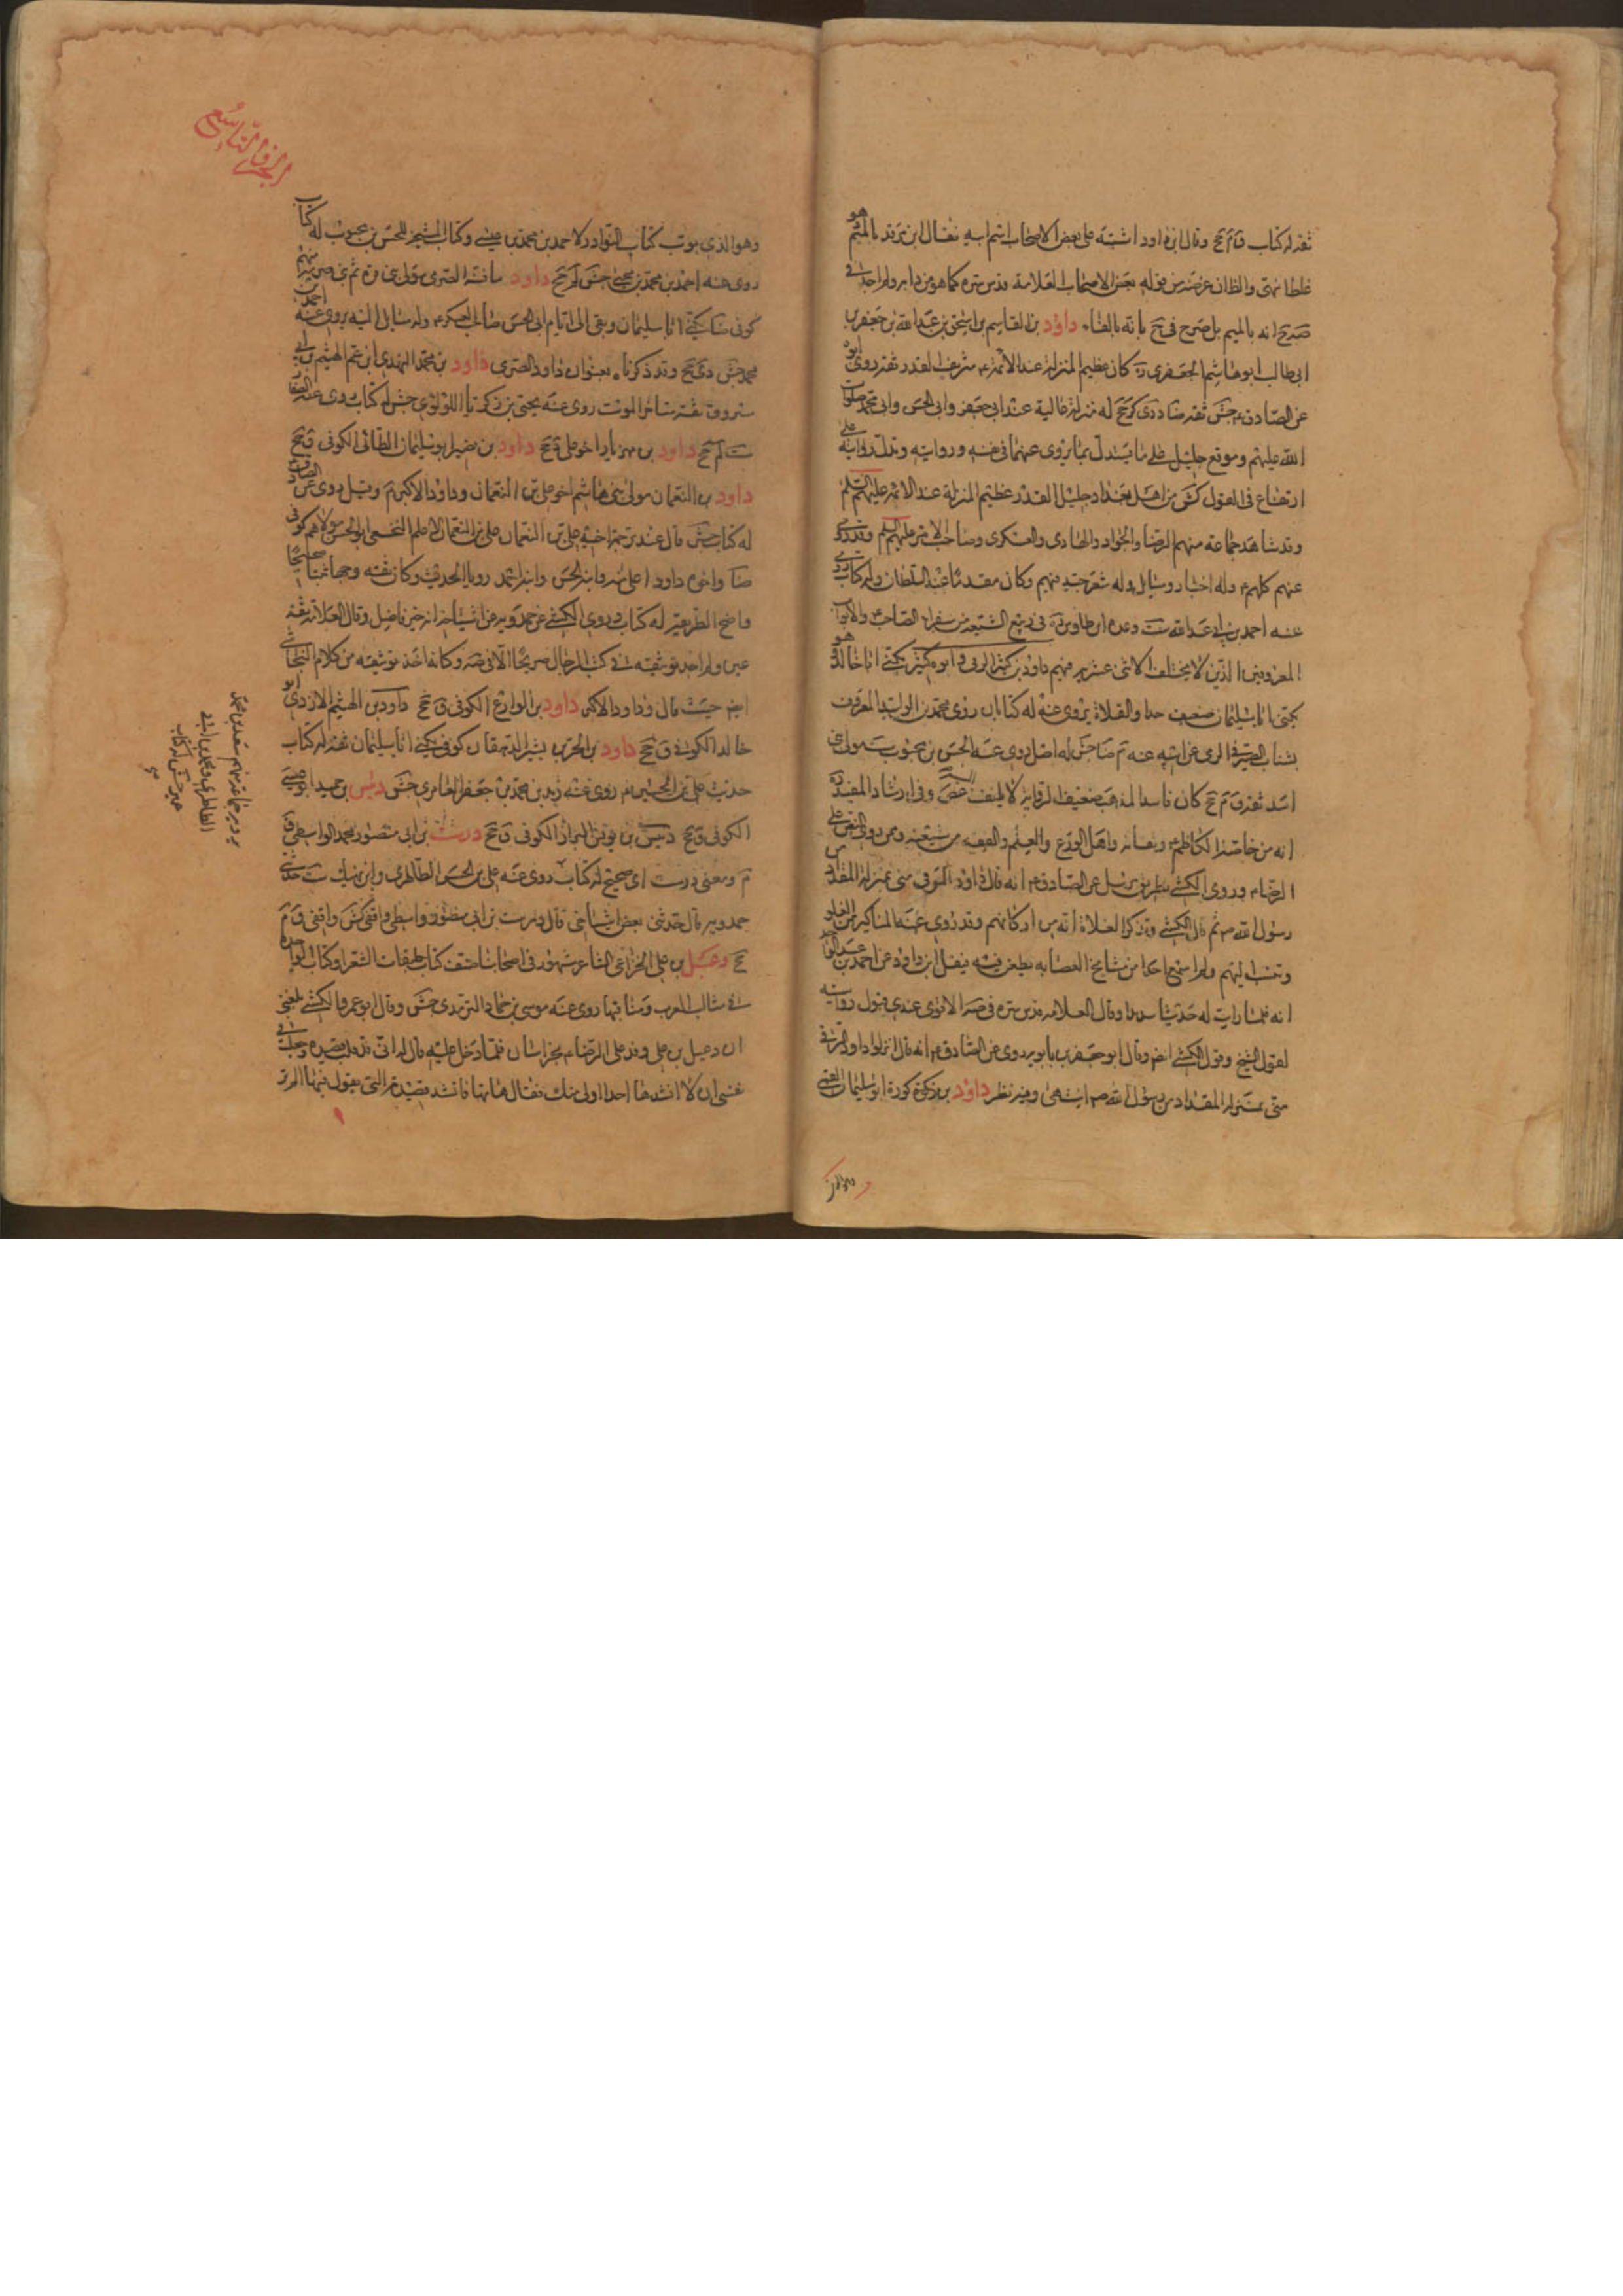 ثقة له كتاب ق م جخ وقال ابن داود اشتبه على بعض الاصحاب اسم ابيه فقال ابن زربد بالميم وهو
غلط انتهى والظاهر ان غرضه من قوله بعض الاصحاب العلامة قدس سره كما هو من دابه ولم اجد في
صه انه بالميم بل صرح في جخ بانه بالفاء داود بن القاسم بن اسحق بن عبد الله بن جعفر بن
ابى طالب ابو هاشم الجعفرى ره كان عظيم المنزلة عند الائمة ع شريف القدر ثقة روى ابوه
عن الصادق ع جش ثقة ضا د دى كر جخ له منزلة عالية عند ابى جعفر وابى الحسن وابى محمد صلوات
الله عليهم وموقع جليل على ما يستدل بما يروى عنهما فى نفسه وروايته وتدل روايته على
ارتفاع فى القول كش من اهل بغداد جليل القدر عظيم المنزلة عند الائمة عليهم السلم
وقد شاهد جماعة منهم الرضا والجواد والهادى والعسكرى وصاحب الامر عليهم السلم وقد روى
عنهم كلهم ع وله اخبار ومسايل وله شعر جيد فيهم وكان مقدما عند السلطان وله كتاب روى
عنه احمد بن ابى عبد الله ست وعده ابن طاوس ره فى ربيع الشيعة من سفراء الصاحب ع والابواب
المعروفين الذين لا يختلف الاثنى عشرية فيهم داود بن كثير الرقى وابوه كثير يكنى ابا خالد وهو
يكنى ابا سليمان ضعيف جدا والغلاة يروى عنه له كتابان روى محمد بن الوليد المعروف
بشباب الصيرفى الرقى عن ابيه عنه م ضا جش له اصل روى عنه الحسن بن محبوب ست مولى بنى
اسد ثقة ق م جخ كان فاسد المذهب ضعيف الرواية لا يلتفت اليه غض وفى ارشاد المفيد ره
انه من خاصة الكاظم ع وثقاته واهل الورع والعلم والفقه من شيعته وممن روى النص على
الرضا ع وروى الكشى بطريق مرسل عن الصادق ع انه قال داود الرقى منى بمنزلة المقداد من
رسول الله ص ثم قال الكشى وتذكر الغلاة انه من اركانهم وقد روى عنه المناكير من الغلو
وتنسب اليهم ولم اسمع احدا من مشايخ العصابة يطعن فيه نقل ابن داود عن احمد بن عبد الواحد
انه قلما رايت له حديثا سديدا وقال العلامة قدس سره فى صه الاقوى عندى قبول روايته
لقول الشيخ وقول الكشى ايضا وقال ابو جعفر بن بابويه روى عن الصادق ع انه قال انزلوا داود الرقى
منى بمنزلة المقداد من رسول الله ص انتهى وفيه نظر داود بن كورة ابو سليمان القمى
وهو الذى
الجزء التاسع
وهو الذى بوب كتاب النوادر لاحمد بن محمد بن عيسى وكتاب المشيخة للحسن بن محبوب له كتاب
روى عنه احمد بن محمد بن يحيى جش لم جخ داود بن مافنة الصرمى مولى بنى قرة ثم بنى صرمة منهم
كوفى ضا يكنى ابا سليمان وبقى الى ايام ابى الحسن صاحب العسكر ع وله مسايل اليه يروى عنه احمد بن
محمد جش دى جخ وقد ذكرناه بعنوان داود الصرمى داود بن محمد النهدى ابن عم الهيثم بن ابى
مسروق ثقة متاخر الموت روى عنه يحيى بن زكريا اللؤلؤى جش له كتاب روى عنه الصفار
ست لم جخ داود بن مهزيار اخو على د جخ داود بن نصير ابو سليمان الطائى الكوفى ق جخ
داود بن النعمان مولى بنى هاشم اخو على بن النعمان وداود الاكبر م وقيل روى عن الصادق ع
له كتاب جش قال عند ترجمة اخيه على بن النعمان على بن النعمان الاعلم النخعى ابو الحسن مولاهم كوفى
ضا واخوه داود اعلى منه وابنه الحسن وابنه احمد رويا الحديث وكان ثقة وجها ثبتا صحيحا
واضح الطريقة له كتاب وروى الكشى عن حمدويه عن اشياخه انه خير فاضل وقال العلامة ثقة
عين ولم اجد توثيقه فى كتب الرجال صريحا الا فى صه وكانه اخذ توثيقه من كلام النجاشى
ايضا حيث قال وداود الاكبر داود بن الوارع الكوفى ق جخ داود بن الهيثم الازدى ابو
خالد الكوفى ق جخ داود بن يحيى بن بشير الدهقان كوفى يكنى ابا سليمان ثقة له كتاب
حديث على بن الحسين ع روى عنه زيد بن محمد بن جعفر العامرى جش دبيس بن حميد ابو عيسى
الكوفى ق جخ دبيس بن يونس البزاز الكوفى ق جخ درست بن ابى منصور محمد الواسطى ق
م ومعنى درست اى صحيح له كتاب روى عنه على بن الحسن الطاطرى وابن نهيك ست حدثنى
حمدويه قال حدثنى بعض اشياخى قال درست بن ابى منصور واسطى واقفى كش واقفى ق م
جخ دعبل بن على الخزاعى الشاعر مشهور فى اصحابنا صنف كتاب طبقات الشعراء وكتاب الواحدة
فى مثالب العرب ومناقبها روى عنه موسى بن حماد اليزيدى جش وقال ابو عمرو الكشى بلغنى
ان دعبل بن على وفد على الرضا ع بخراسان فلما دخل عليه قال له انى قد قلت قصيدة وجعلت فى
نفسى ان لا انشدها احدا اولى منك فقال هاتها فانشده قصيدته التى يقول فيها الم تر
وغيره جماعة منهم سعد بن محمد
الطاطرى ومحمد بن ابى
عمير جش له كتاب